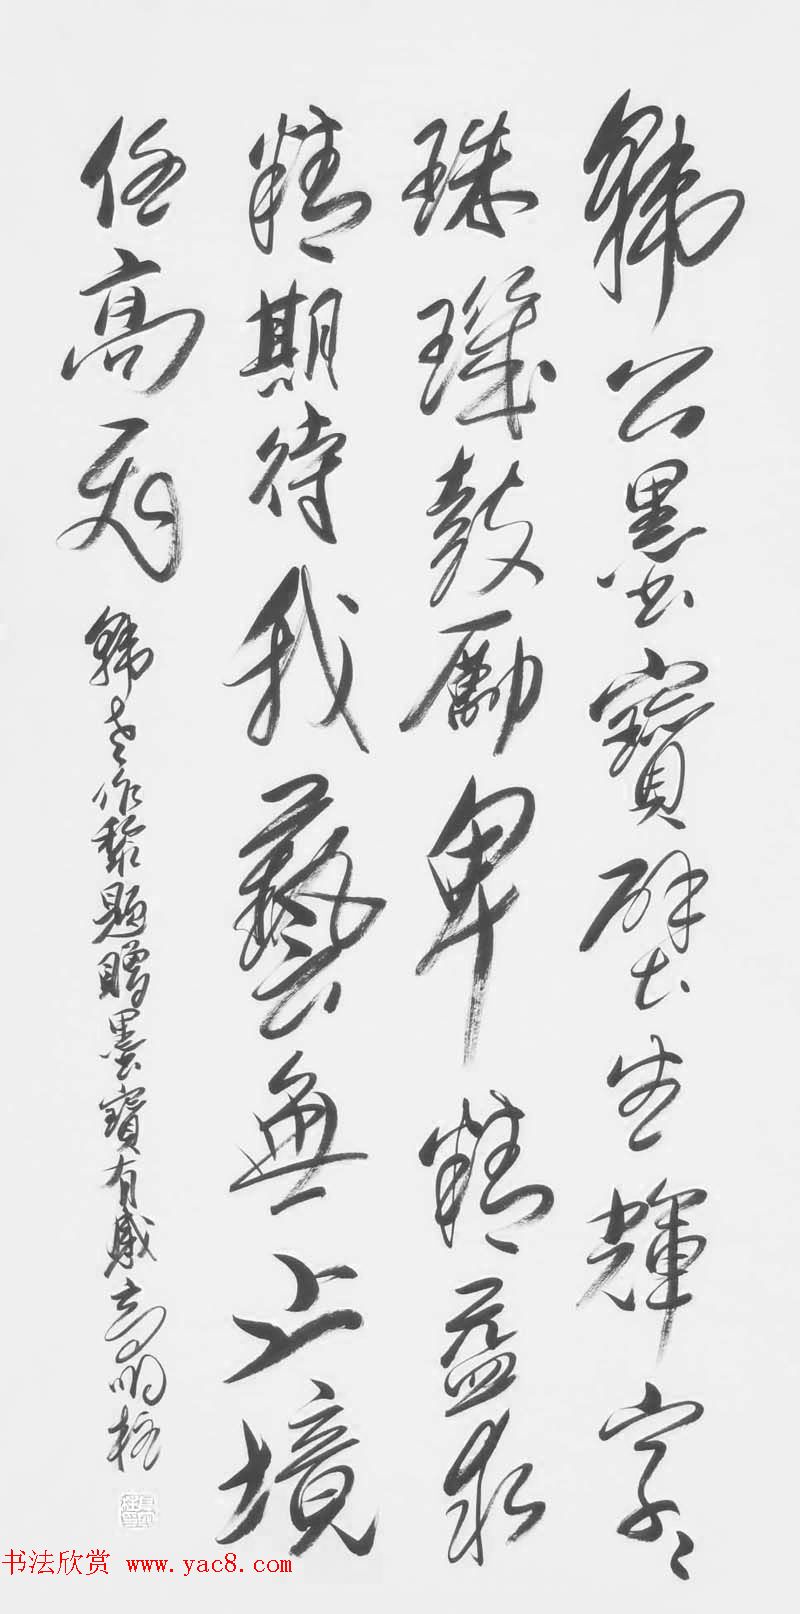 韓公墨寶壁生輝字〻
珠璣鼓勵卑精益求
精期待我藝無止境
任高飛
韓老作黎題贈墨寶有感高明柱
书法欣赏 www.yac8.com